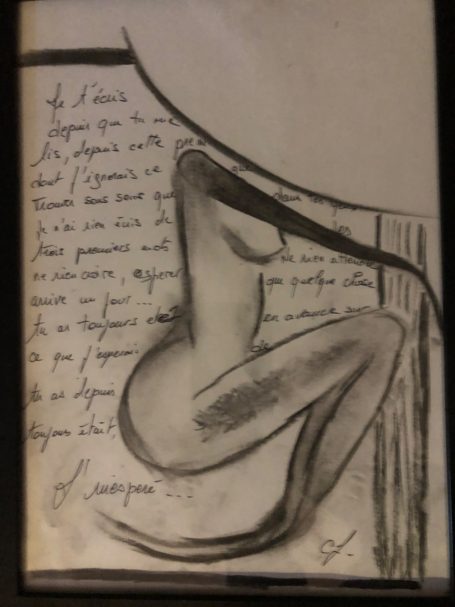 Je t'écris
depuis que tu me
lis, depuis cette
dont j'ignorais ce que
trouver sans savoir que dans tes
Je n'ai rien écris de les
trois premiers mots Ne rien attendre
ne rien croire, espérer que quelque chose
arrive un jour...
tu as toujours été en avance sur
ce que j'espérais de
tu as depuis
toujours était,
L'inespéré...